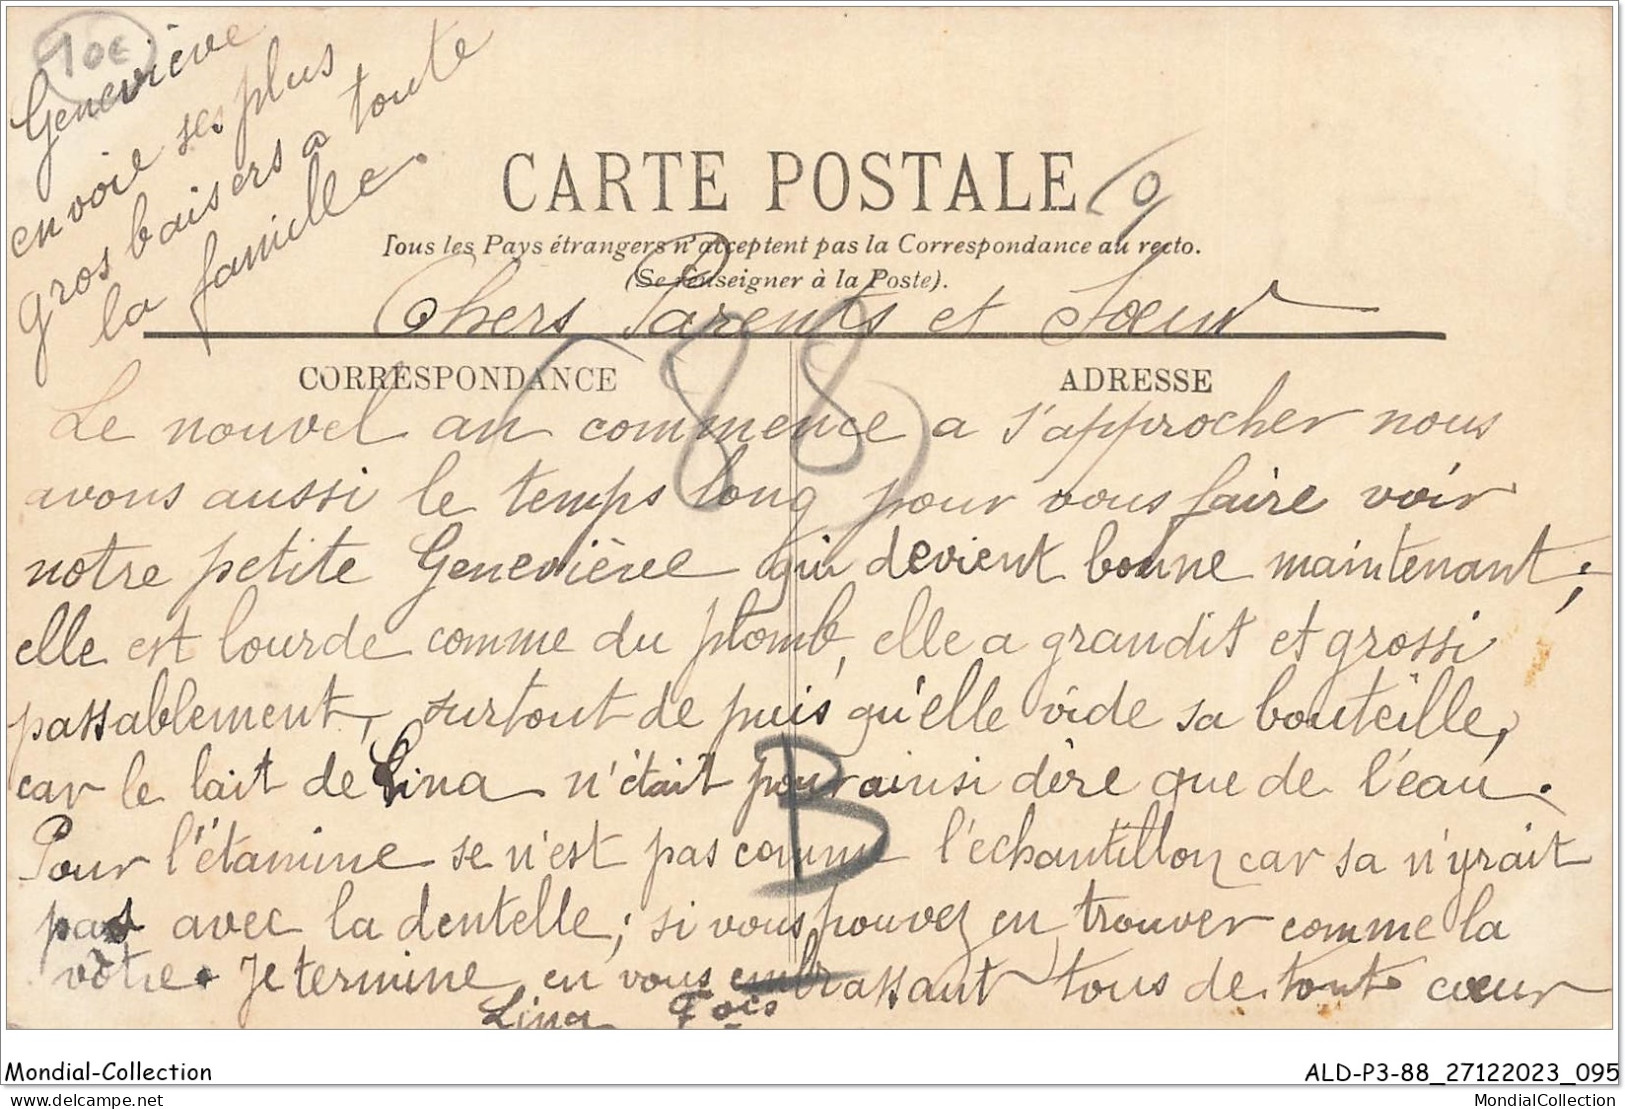 10€
Geneviève
envoie ses plus
gros baisers a toute
la famille.
CARTE POSTALE
9
Tous les Pays étrangers n'acceptent pas la Correspondance au recto.
(Se renseigner à la Poste).
Chers Parents et Sœur
CORRESPONDANCE
ADRESSE
88
Le nouvel an commence a s'approcher nous
avons aussi le temps long pour vous faire voir
notre petite Geneviève qui devient bonne maintenant;
elle est lourde comme du plomb, elle a grandit et grossi
passablement, surtout de puis qu'elle vide sa bouteille,
car le lait de Lina n'était pour ainsi dire que de l'eau.
B
Pour l'étamine se n'est pas comme l'échantillon car sa n'yrait
pas avec la dentelle; si vous pouvez en trouver comme la
vôtre. Je termine en vous embrassant tous de tout cœur
Lina
Mondial-Collection
ALD-P3-88_27122023_095
delcampe.net
MondialCollection